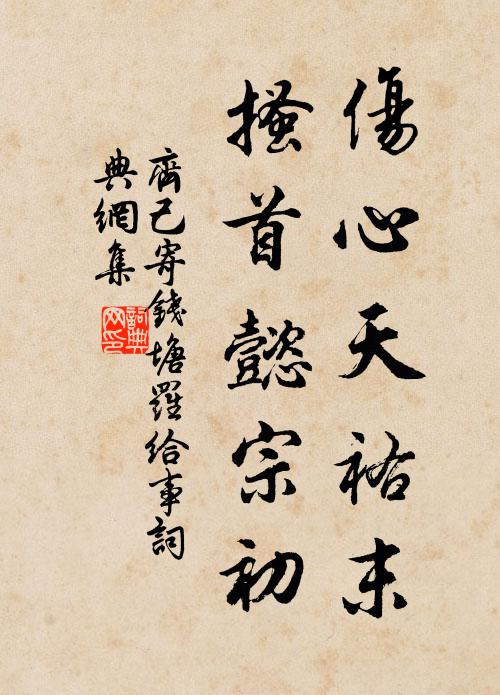 傷心天祐末
搔首懿宗初
齊己寄錢塘羅給事詞
典網集
詞典
网印